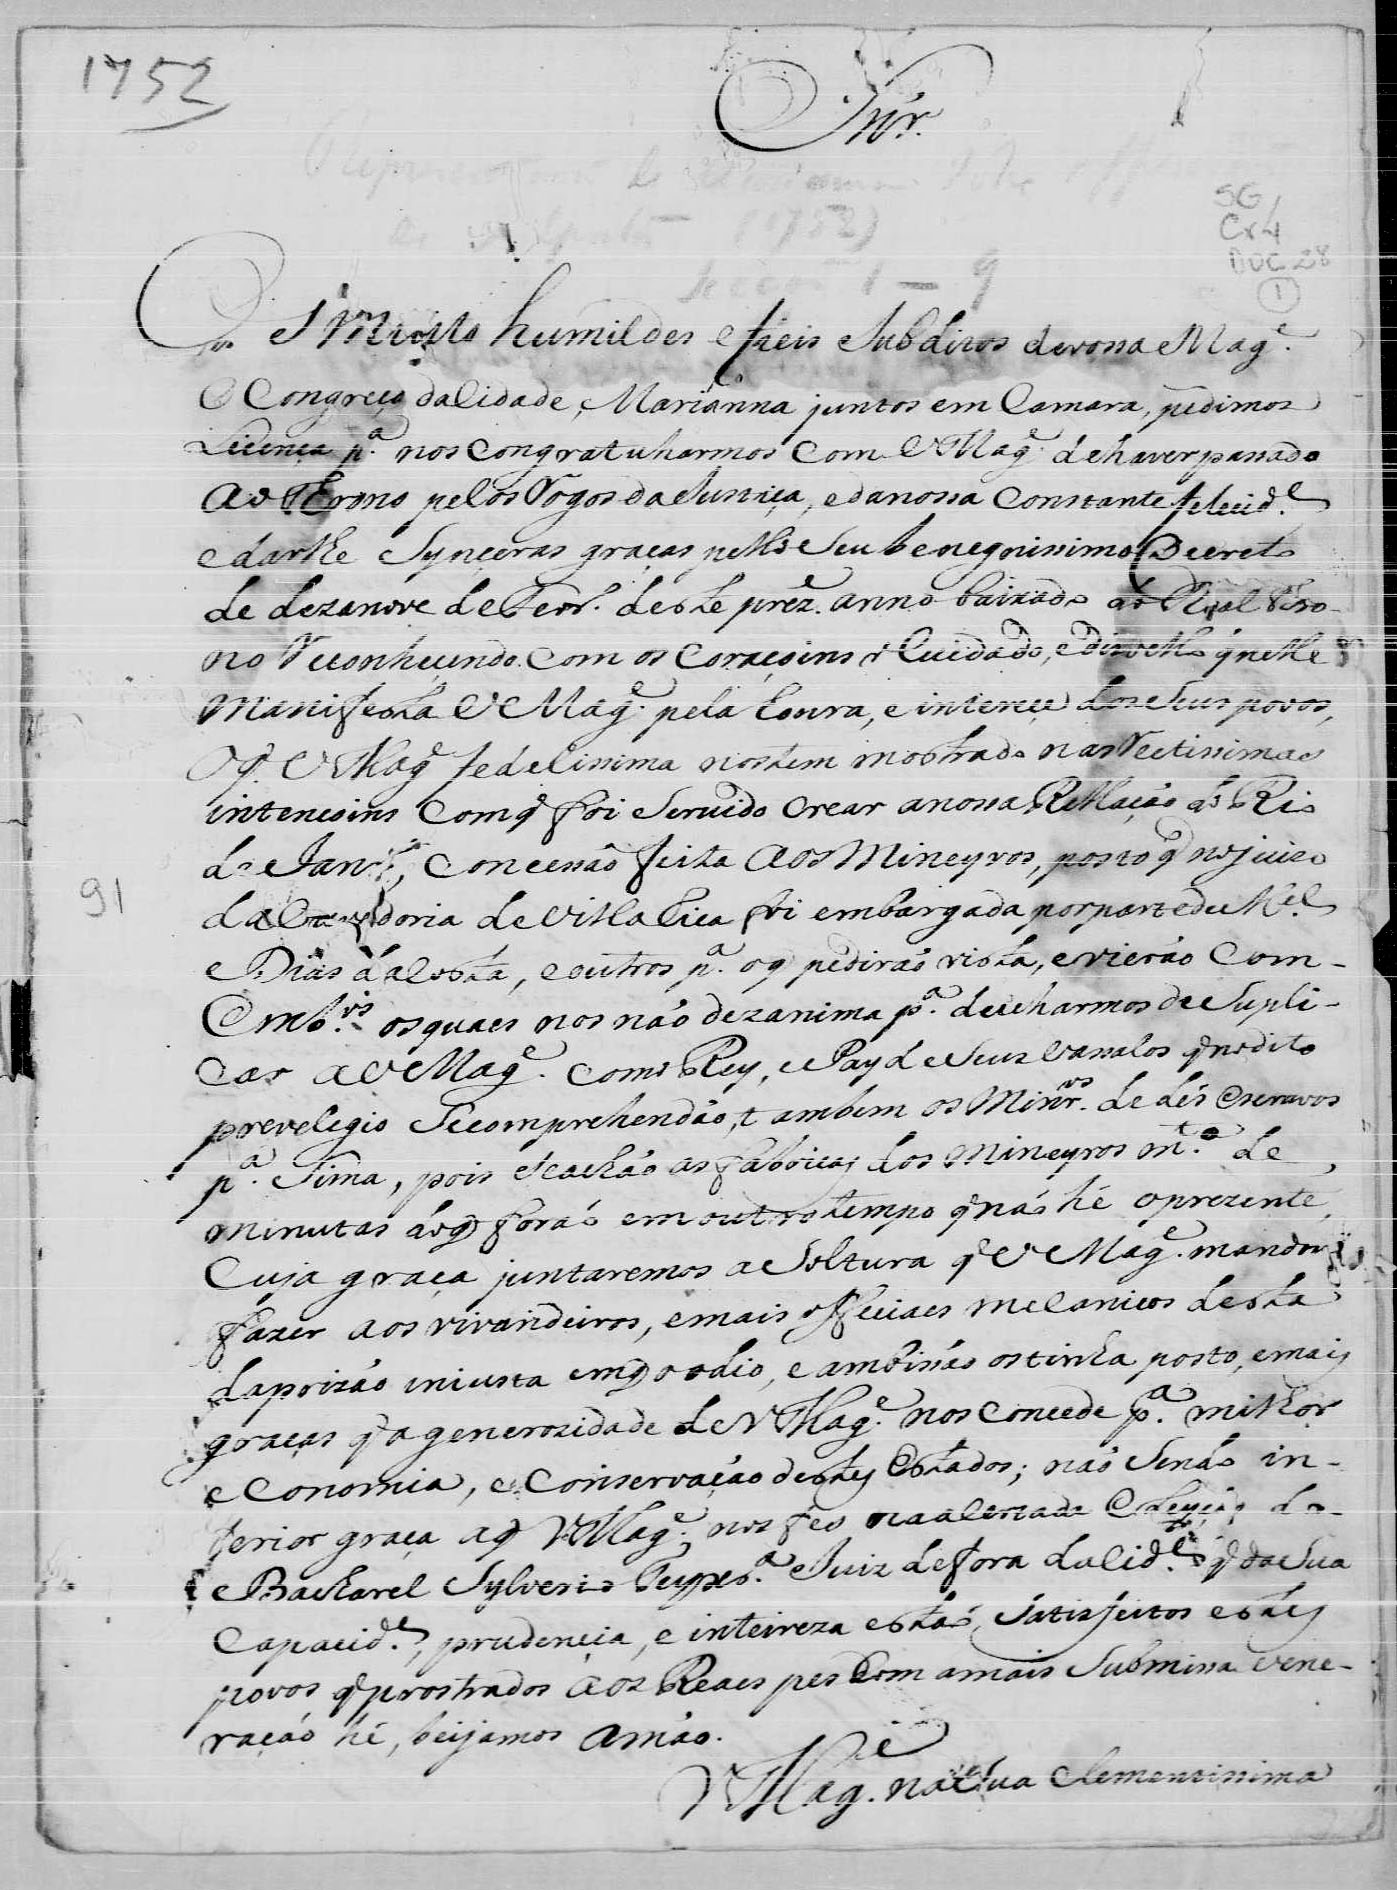 1752
Snõr.
SG
Cx4
DOC 28
1
Os Muito humildes e fieis Subditos devossa Mag.e
O Congreço dalidade, Marianna juntos em Camara, pedimos
Licença p.a nos congratularmos Com V Mag.e dehaverpassado
Ao Throno pelos Rogos da Justiça, edanossa Constante felecid.e
edarlhe Synçeras graças pello Seu benegnissimo Decreto
de dezanove de Fevr.o deste prez.e anno baixado do Real Thro-
no Reconheçendo Com os Coraçoins o Cuidado, e disvello q nelle
Manifesta V Mag.e pela honra, e interece dos Seus povos,
Oq. V Mag.e fedelissima nostem mostrado nas Rectissimas
intençoins Comq foi Servido Crear anossa Rellação do Rio
de Janr.o, Concessão feita aos Mineyros, posto q nojuizo
da Ouvedoria de Villa Rica foi embargada porparte de M.el
Dias da Costa, eoutros p.a oq pedirão vista, evierão Com-
Emb.os osquaes nos não dezanima p.a deicharmos de Supli-
Car a V Mag.e Como Rey, e Pay de Seus Vassalos q nodito
prevelegio Secomprehendão, tambem os Minr.os de dés escravos
p.a Sima, pois Seachão as fabricas dos Mineyros m.to de
minutas doq forão em outro tempo q não hé oprezente,
Cuja graça juntaremos a Soltura q V Mag.e mandou
fazer aos vivandeiros, emais offeciaes mecanicos desta
daprizão injusta emq o odio, e ambissão ostinha posto, emais
graças q a generozidade de V Mag.e nos Concede p.a milhor
eConomia, e Conservação destes Estados; não Sendo in-
ferior graça aq V Mag.e nos fes naacertada Eleyção do
Bacharel Sylverio Teyxr.a Juiz defora dalid.e q da Sua
Capacid.e, prudencia, e inteireza estão Satisfeitos estes
povos q prostrados aos Reaes pes Com amais Submissa vene-
ração hé, beijamos amão.
V Mag.e na Sua Clementissima
91